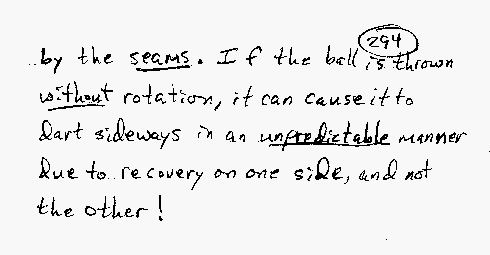 294
by the seams. If the ball is thrown
without rotation, it can cause it to
dart sideways in an unpredictable manner
due to recovery on one side, and not
the other!